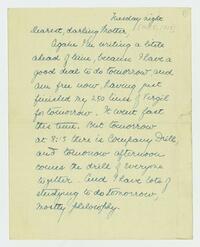 Tuesday night
Dearest, darling Mother,
Again I'm writing a little
ahead of time, because I have a
good deal to do tomorrow and
am free now, having just
finished my 250 lines of Virgil
for tomorrow. It went fast
this time. But tomorrow
at 8:15 there is Company Drill,
and tomorrow afternoon
comes the drill of everyone
together. And I have lots of
studying to do tomorrow,
mostly philosophy.